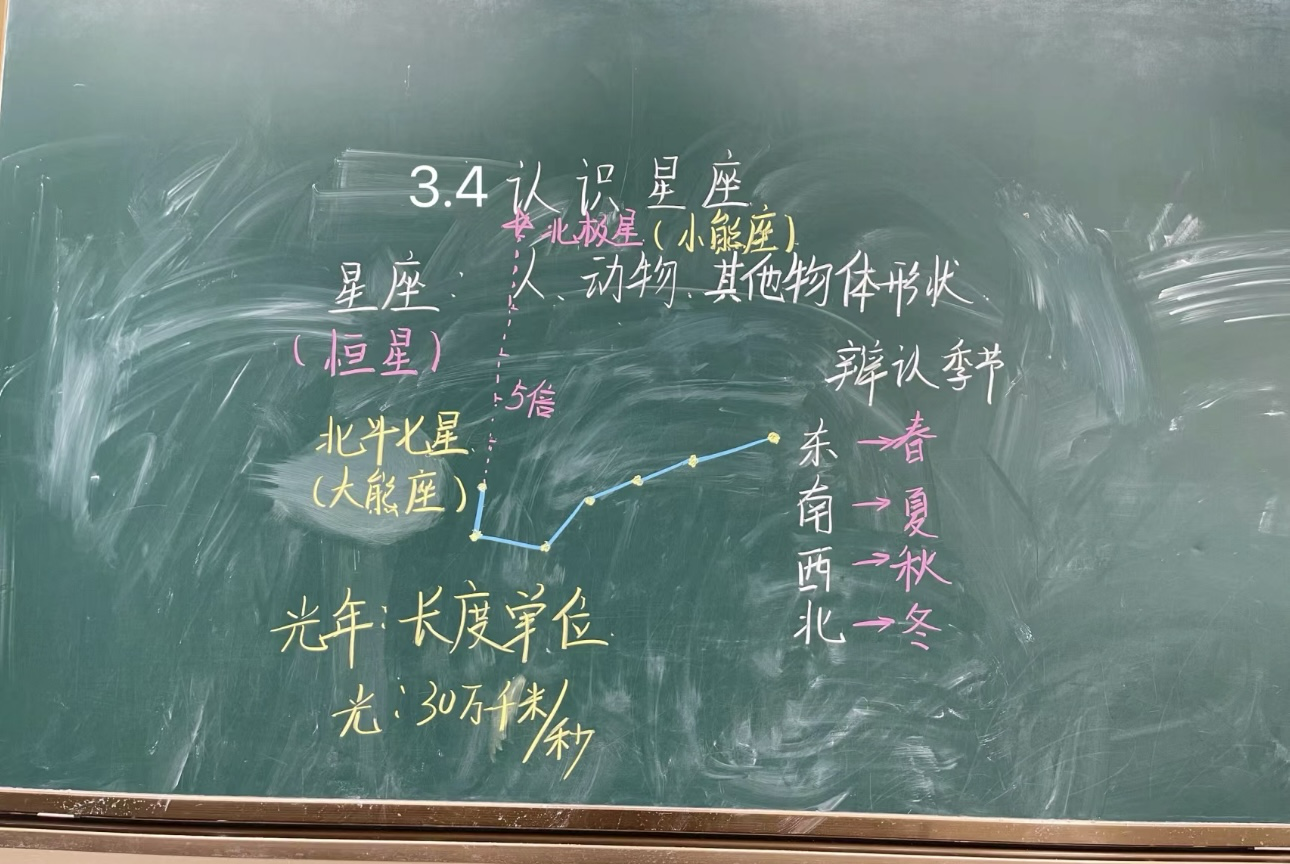 3.4 认识星座
北极星(小熊座)
星座：人、动物、其他物体形状
(恒星)
辨认季节
5倍
北斗七星
(大熊座)
东→春
南→夏
西→秋
北→冬
光年：长度单位
光：30万千米/秒